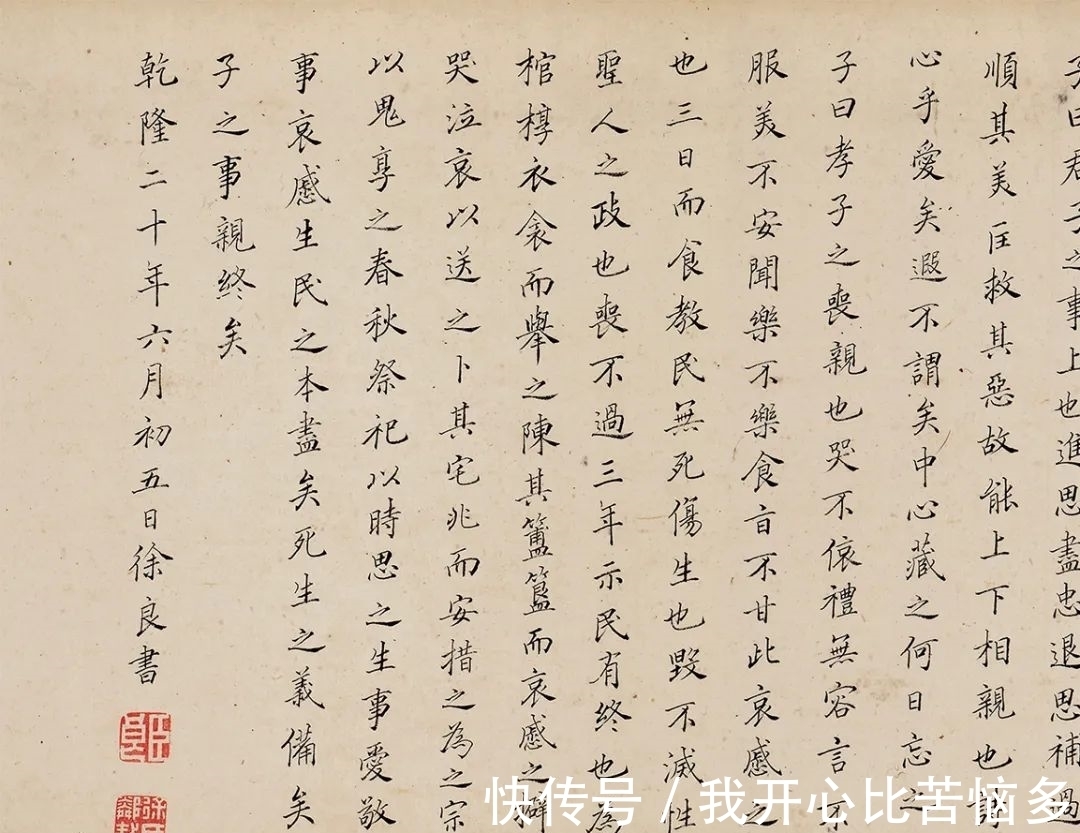 子曰君子之事上也進思盡忠退思補過
順其美匡救其惡故能上下相親也詩
心乎愛矣遐不謂矣中心藏之何日忘之
子曰孝子之喪親也哭不偯禮無容言不
服美不安聞樂不樂食旨不甘此哀慼之
也三日而食教民無死傷生也毀不滅性
聖人之政也喪不過三年示民有終也為
棺椁衣衾而舉之陳其簠簋而哀慼之擗
哭泣哀以送之卜其宅兆而安措之為之宗
以鬼享之春秋祭祀以時思之生事愛敬
事哀慼生民之本盡矣死生之義備矣
子之事親終矣
乾隆二十年六月初五日徐良書
快传号 / 我开心比苦恼多